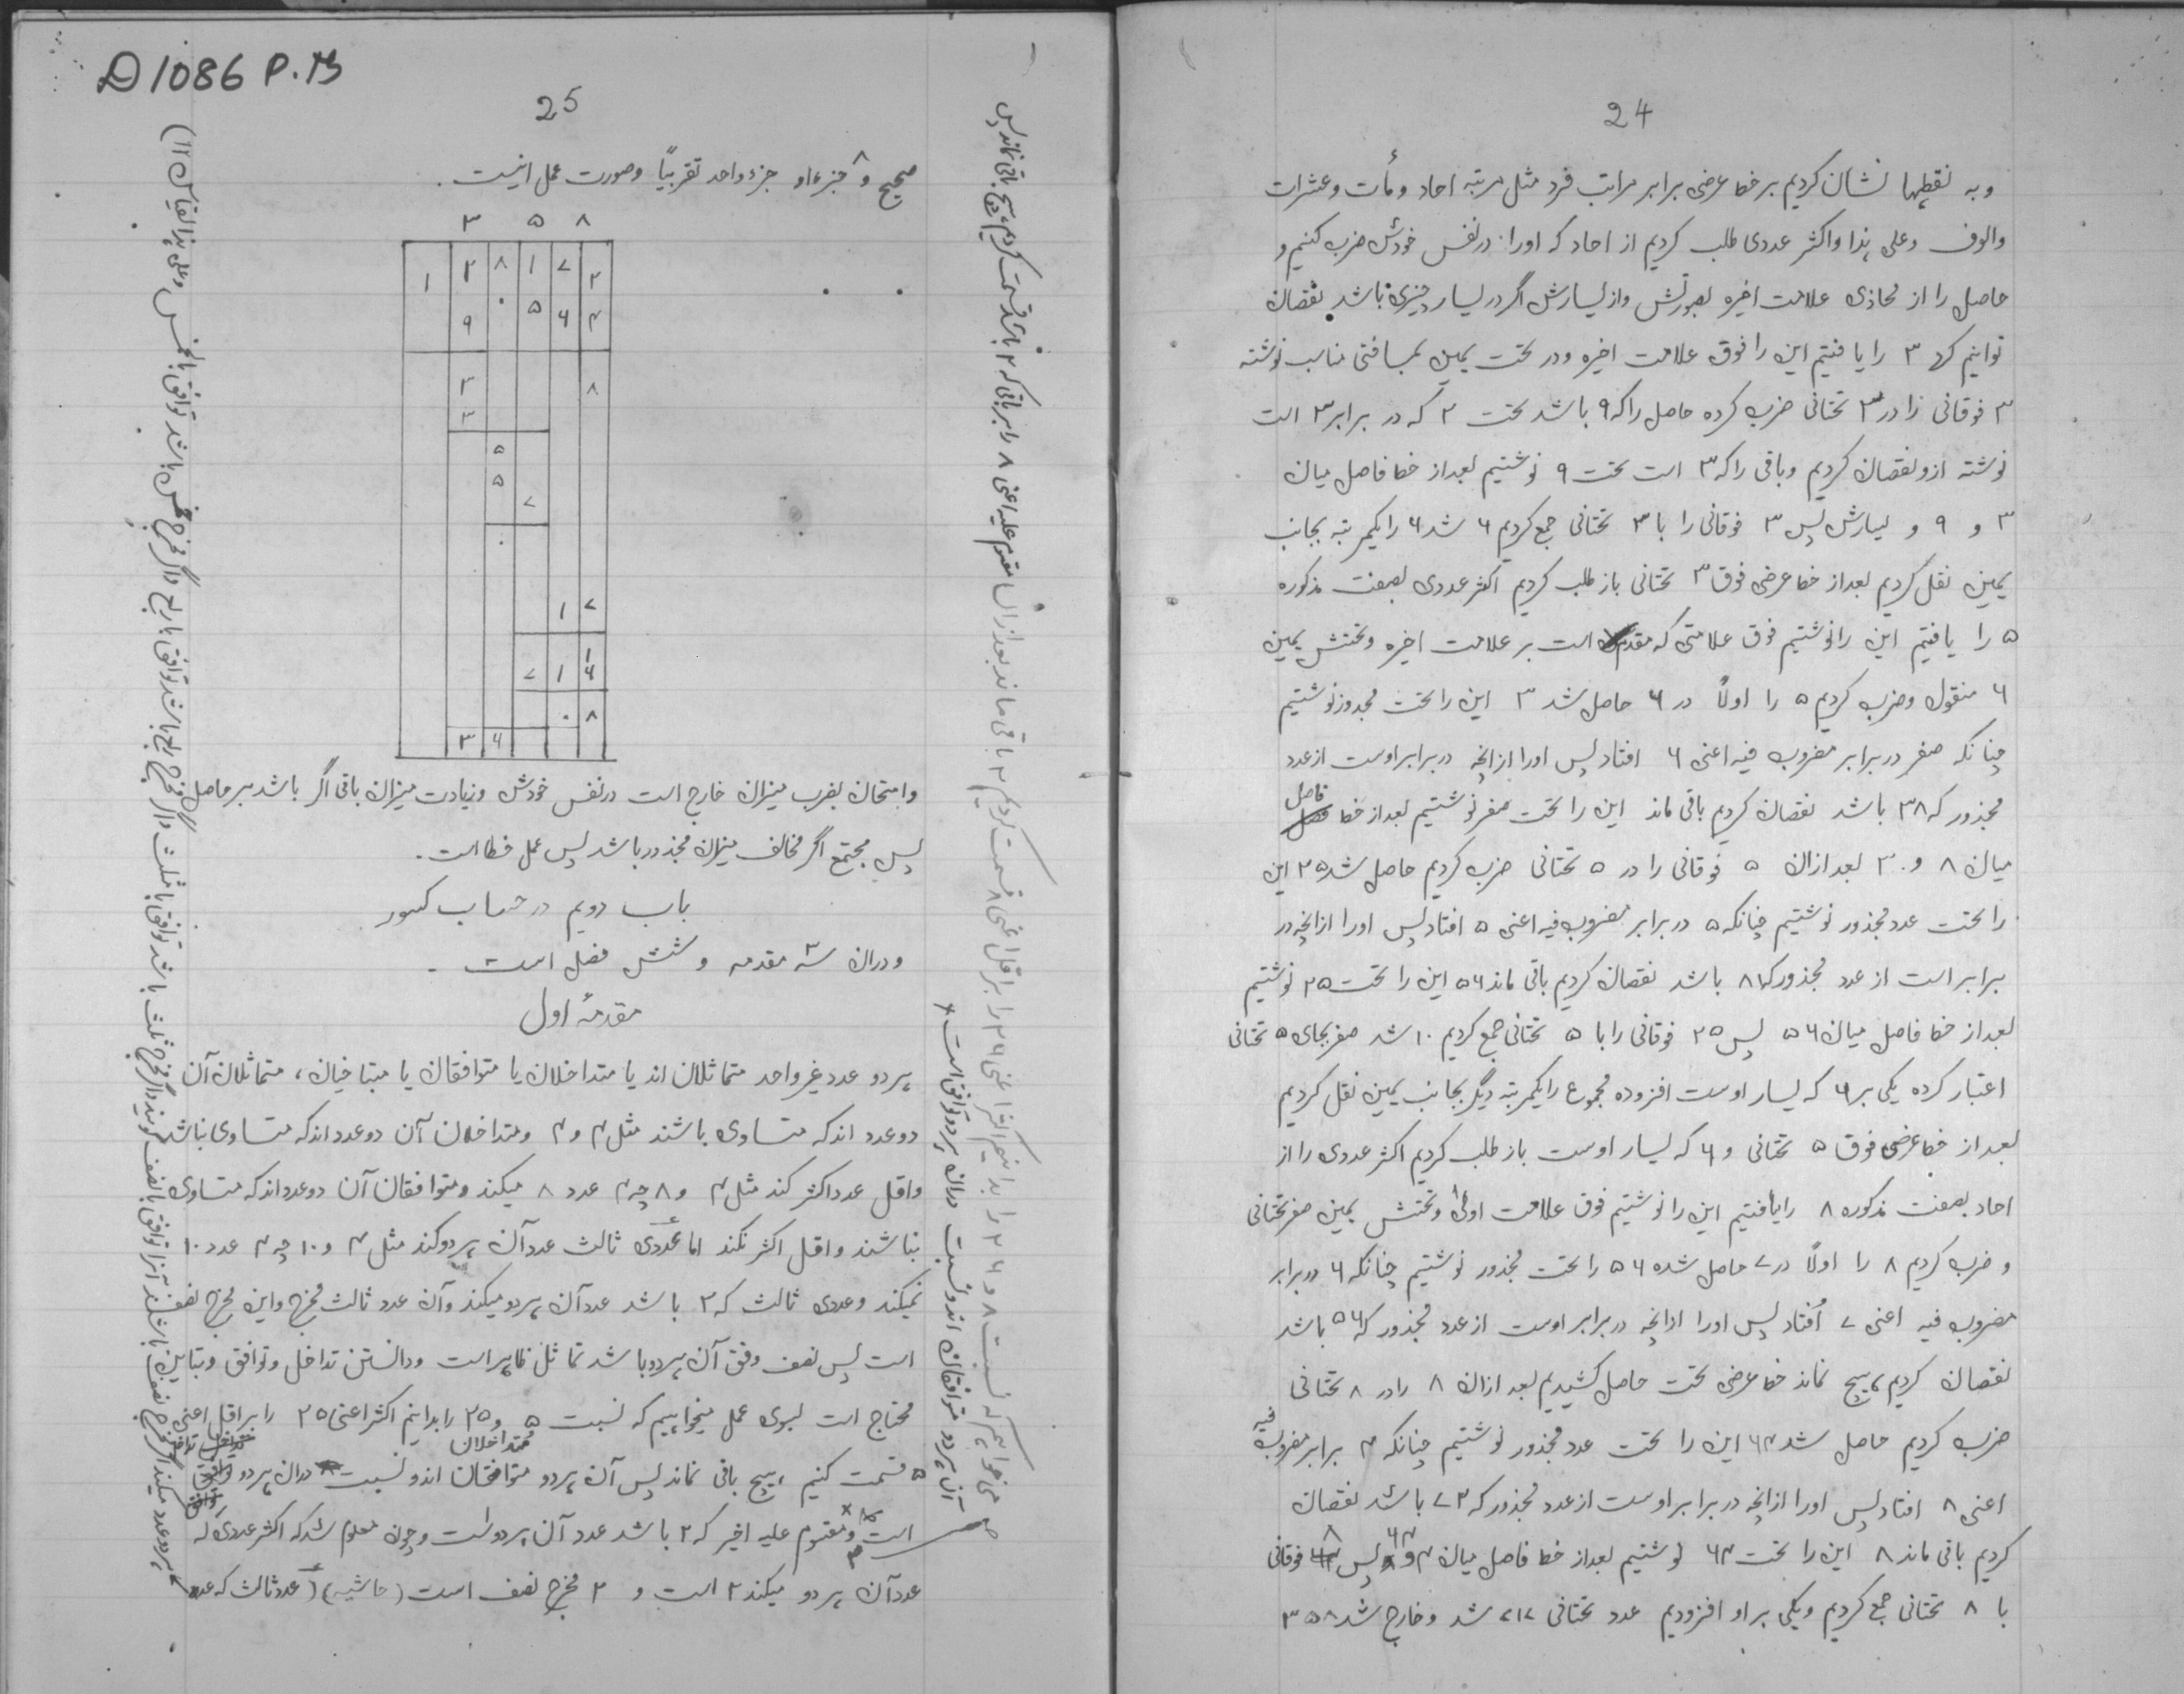 24
وبه نقطها نشان کردیم بر خط عرضی برابر مراتب فرد مثل مرتبه احاد و مأت و عشرات
والوف وعلی هذا واکثر عددی طلب کردیم از احاد که اورا در نفس خودش ضرب کنیم و
حاصل را از محاذی علامت اخیره بصورتش واز یسارش اگر در یسار چیزی باشد نقصان
توانیم کرد ۳ را یافتیم این را فوق علامت اخیره ودر تحت یمین بمسافتی مناسب نوشته
۳ فوقانی را در ۳ تحتانی ضرب کرده حاصل را که ۹ باشد تحت ۲ که در برابر ۳ است
نوشته ازو نقصان کردیم وباقی را که ۳ است تحت ۹ نوشتیم بعد از خط فاصل میان
۳ و ۹ و یسارش پس ۳ فوقانی را با ۳ تحتانی جمع کردیم ۶ شد ۶ را یکمرتبه بجانب
یمین نقل کردیم بعد از خط عرضی فوق ۳ تحتانی باز طلب کردیم اکثر عددی بصفت مذکوره
۵ را یافتیم این را نوشتیم فوق علامتی که مقدم است بر علامت اخیره وتحتش یمین
۶ منقول وضرب کردیم ۵ را اولاً در ۶ حاصل شد ۳ این را تحت مجذور نوشتیم
چنانکه صفر در برابر مضروب فیه اعنی ۶ افتاد پس اورا ازانچه در برابر اوست از عدد
مجذور که ۳۸ باشد نقصان کردیم باقی ماند این را تحت صفر نوشتیم بعد از خط فاصل
میان ۸ و ۳۰ بعد ازان ۵ فوقانی را در ۵ تحتانی ضرب کردیم حاصل شد ۲۵ این
را تحت عدد مجذور نوشتیم چنانکه ۵ در برابر مضروب فیه اعنی ۵ افتاد پس اورا ازانچه در
برابر است از عدد مجذور که ۸۱ باشد نقصان کردیم باقی ماند ۵۶ این را تحت ۲۵ نوشتیم
بعد از خط فاصل میان ۵۶ پس ۲۵ فوقانی را با ۵ تحتانی جمع کردیم ۱۰ شد صفر بجای ۵ تحتانی
اعتبار کرده یکی بر ۶ که یسار اوست افزوده مجموع را یکمرتبه دیگر بجانب یمین نقل کردیم
بعد از خط عرضی فوق ۵ تحتانی و ۶ که یسار اوست باز طلب کردیم اکثر عددی را از
احاد بصفت مذکوره ۸ را یافتیم این را نوشتیم فوق علامت اولیٰ وتحتش یمین صفر تحتانی
و ضرب کردیم ۸ را اولاً در ۷ حاصل شده ۵۶ را تحت مجذور نوشتیم چنانکه ۶ در برابر
مضروب فیه اعنی ۷ اُفتاد پس اورا ازانچه در برابر اوست از عدد مجذور که ۵۶ باشد
نقصان کردیم هیچ نماند خط عرضی تحت حاصل کشیدیم بعد ازان ۸ را در ۸ تحتانی
ضرب کردیم حاصل شد ۶۴ این را تحت عدد مجذور نوشتیم چنانکه ۴ برابر مضروب فیه
اعنی ۸ افتاد پس اورا ازانچه در برابر اوست از عدد مجذور که ۷۲ باشد نقصان
کردیم باقی ماند ۸ این را تحت ۶۴ نوشتیم بعد از خط فاصل میان ۸ و ۶۴ پس ۸ فوقانی
با ۸ تحتانی جمع کردیم ویکی بر او افزودیم عدد تحتانی ۷۱۷ شد وخارج شد ۳۵۸
D1086 P.13
25
صحیح و ۸ جزء او جزء واحد تقریباً وصورت عمل اینست.
۳ ۵ ۸
۱ ۲ ۸ ۱ ۷ ۲
۹ ۰ ۵ ۶ ۴
۳ ۸
۳
۵
۵
۷
۰
۱ ۷
۷ ۱ ۶
۰ ۸
۳ ۶
وامتحان بضرب میزان خارج است در نفس خودش وزیادت میزان باقی اگر باشد بر حاصل
پس مجتمع اگر مخالف میزان مجذور باشد پس عمل خطا است.
باب دویم در حساب کسور
ودران سه مقدمه و شش فصل است -
مقدمۂ اول
هر دو عدد غیر واحد متماثلان اند یا متداخلان یا متوافقان یا متباینان، متماثلان آن
دو عدد اند که متساوی باشند مثل ۴ و ۴ ومتداخلان آن دو عدد اند که متساوی نباشند
واقل عد اکثر کند مثل ۴ و ۸ چه ۴ عدد ۸ میکند ومتوافقان آن دو عدد اند که متساوی
نباشند واقل اکثر نکند اما عددی ثالث عدد آن هر دو کند مثل ۴ و ۱۰ چه ۴ عدد ۱۰
نمیکند وعددی ثالث که ۲ باشد عدد آن هر دو میکند وآن عدد ثالث مخرج واین مخرج نصف
است پس نصف وفق آن هر دو باشد تماثل ظاهر است ودانستن تداخل وتوافق وتباین
محتاج است بسوی عمل میخواهیم که نسبت ۵ و ۲۵ را بدانیم اکثر اعنی ۲۵ را بر اقل اعنی
۵ قسمت کنیم هیچ باقی نماند پس آن هر دو متداخلان اند ونسبت دران هر دو تداخل
است ومقسوم علیه اخیر که ۲ باشد عدد آن هر دو است وچون معلوم شد که اکثر عددی که
عدد آن هر دو میکند ۲ است و ۲ مخرج نصف است (حاشیه) عدد ثالث که عد
می خواهیم که نسبت ۸ و ۲۶ را بدانیم اکثر اعنی ۲۶ را بر اقل اعنی ۸ قسمت کردیم ۲ باقی ماند بعد ازان مقسوم علیه اعنی ۸ را بر باقی که ۲ باشد قسمت کردیم هیچ باقی نماند پس
آن هر دو متوافقان اند ونسبت دران هر دو توافق است
هر دو عدد میکند اگر مخرج نصف باشد آنرا توافق بالنصف گویند واگر مخرج ثلث باشد توافق بالثلث واگر مخرج ربع باشد توافق بالربع واگر مخرج خمس باشد توافق بالخمس وعلی هذا القیاس ۱۲)